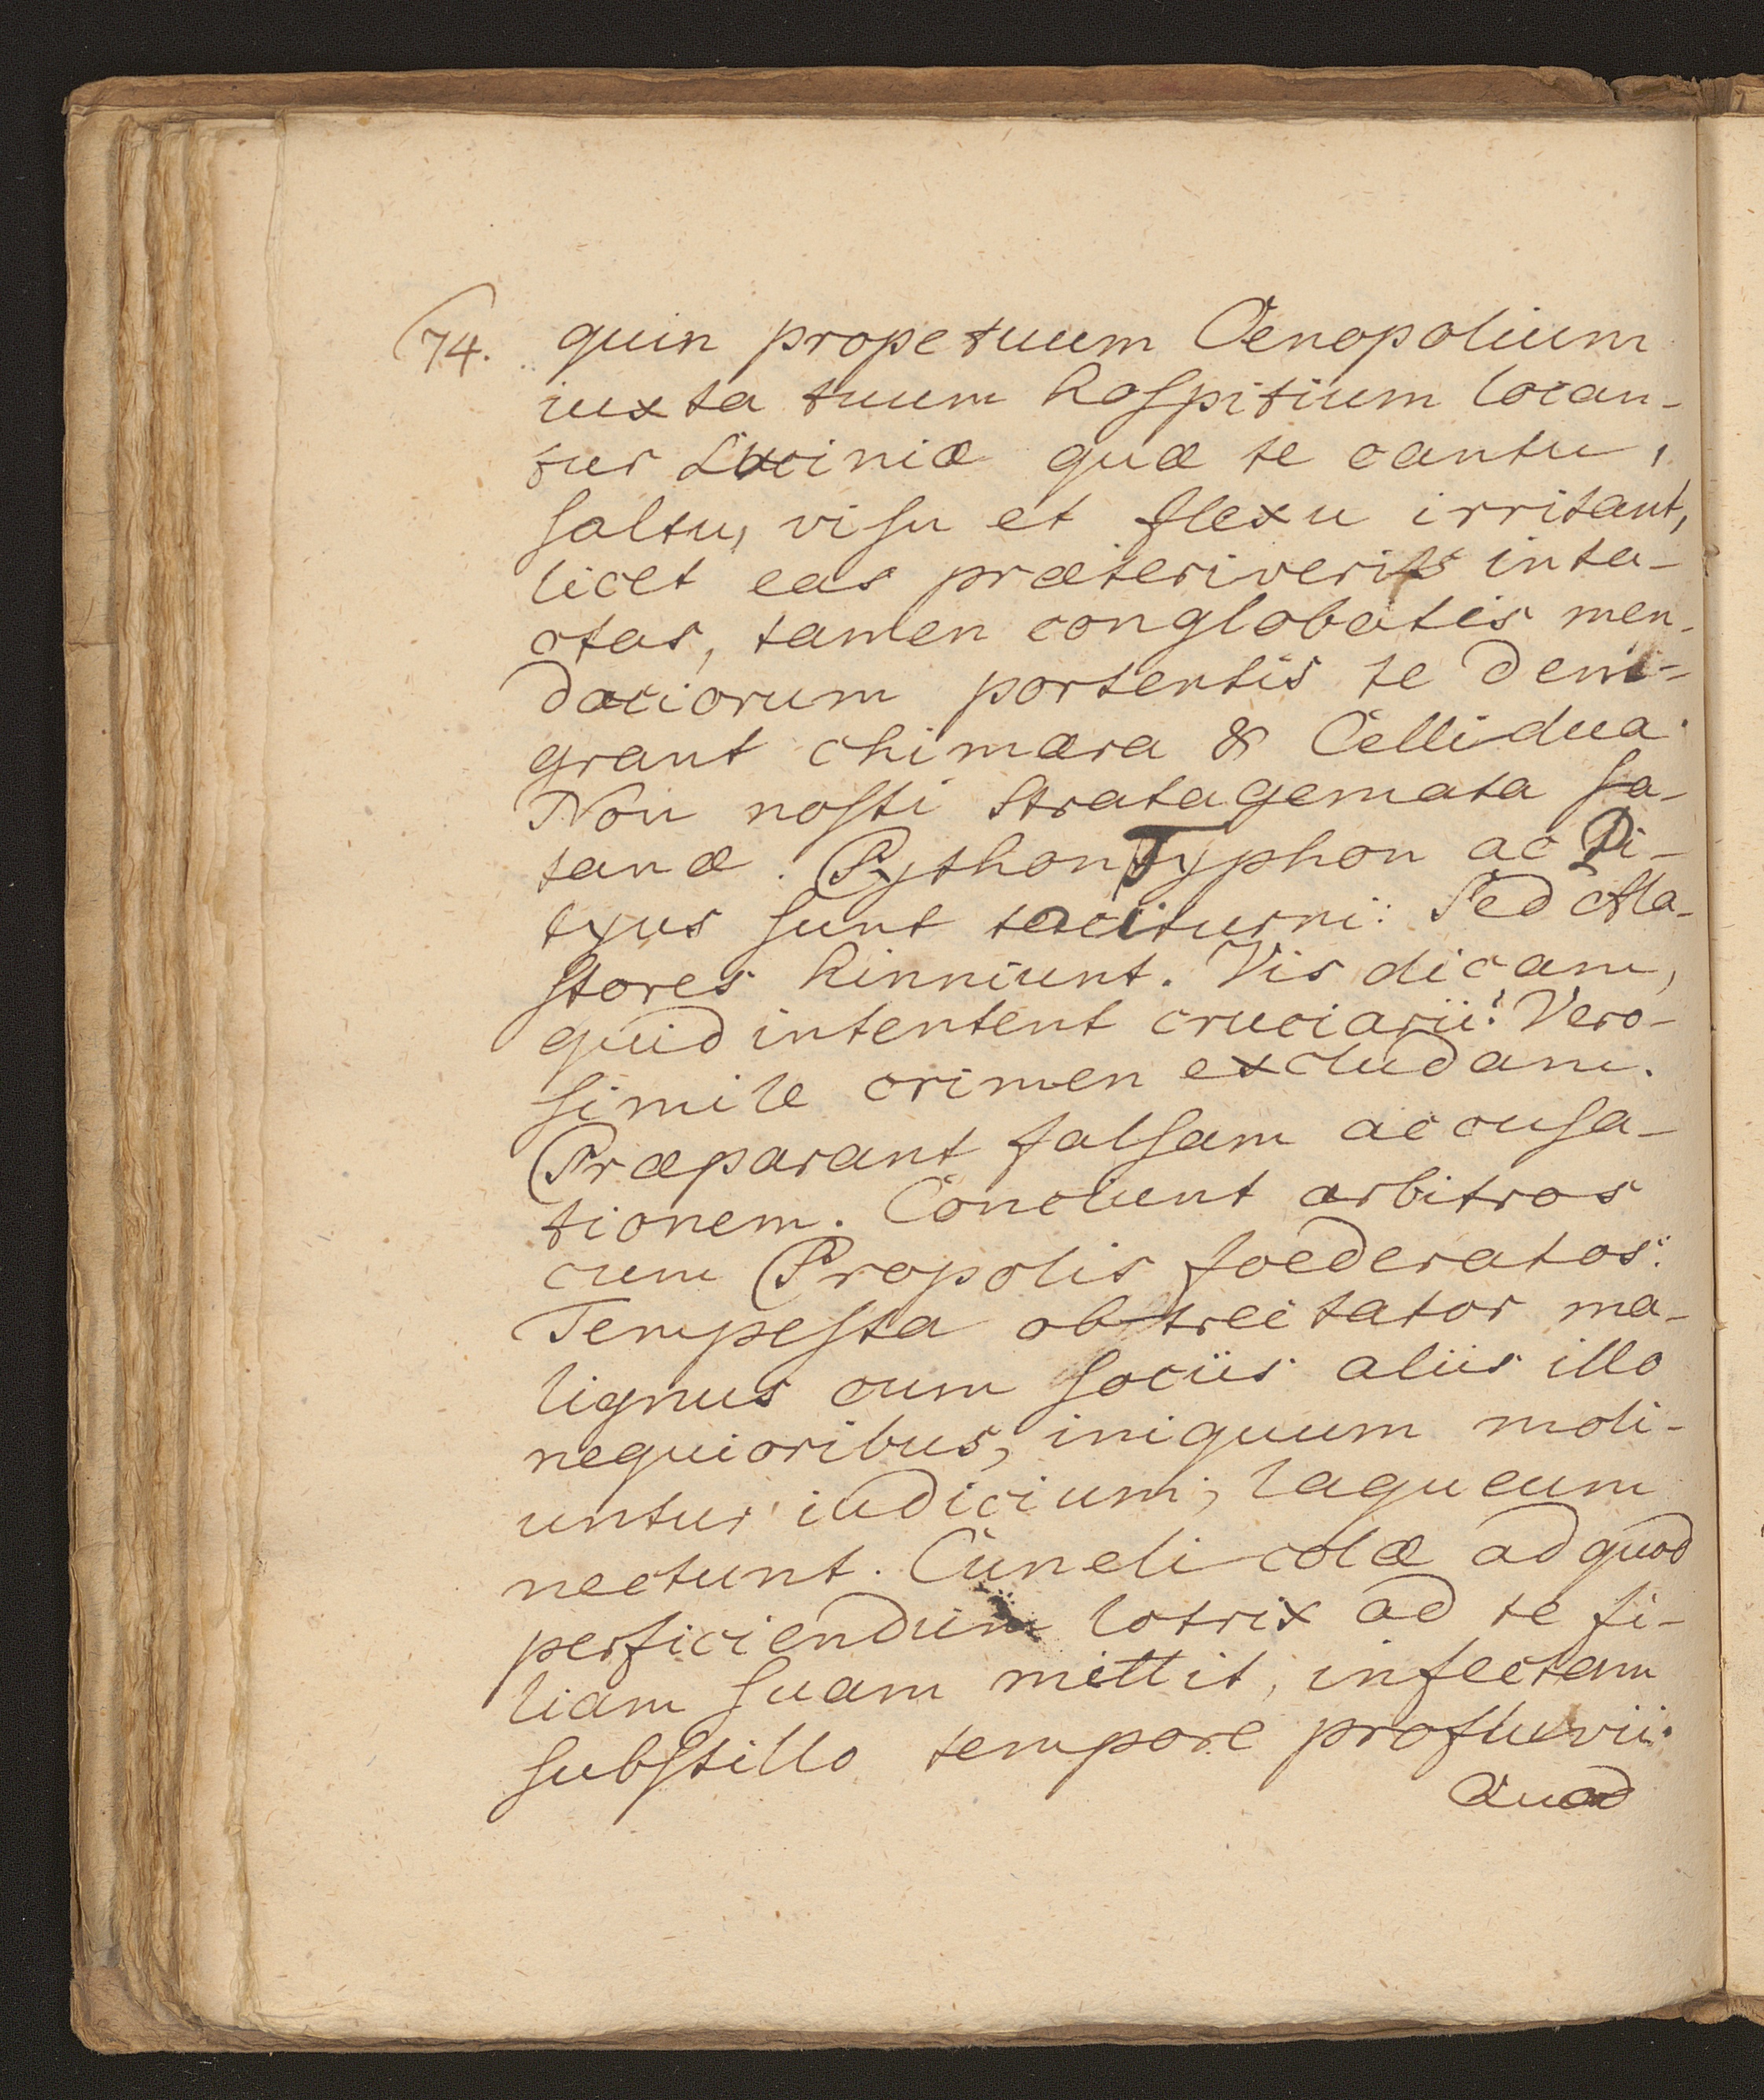 74. quin prope tuum Oenopolium
iuxta tuum hospitium locan-
tur Luciniæ quæ te cantu,
saltu, visu et flexu irritant,
licet eas præteriveris inta-
ctas, tamen conglobatis men-
daciorum portentis te deni-
grant chimæra & Cellidua.
Non nosti stratagemata sa-
tanæ. Python Typhon ac Di-
tyus sunt taciturni: Sed Ala-
stores hinniunt. Vis dicam,
quid intentent cruciarii? Vero-
simile crimen excludam.
Præparant falsam accusa-
tionem. Conciunt arbitros
cum Propolis foederatos:
Tempesta obtrectator ma-
lignus cum sociis aliis illo
nequioribus, iniquum moli-
untur iudicium, laqueum
nectunt. Cunelicolæ ad quod
perficiendum lotrix ad te fi-
liam suam mittit, infectam
substillo tempore profluvii.
Quod